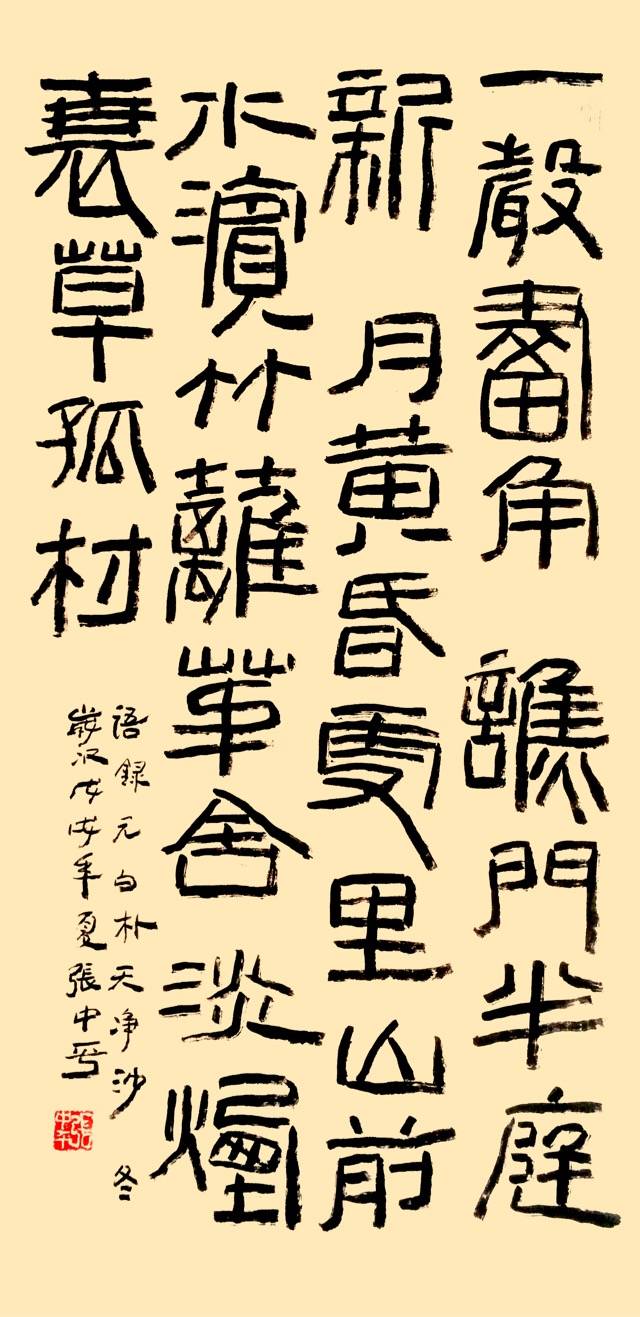 一聲畫角 譙門半庭
新 月黃昏雪里山前
水濱竹籬茅舍淡煙
衰草孤村
語錄元白朴天净沙 冬
歲次戊戌年夏張中